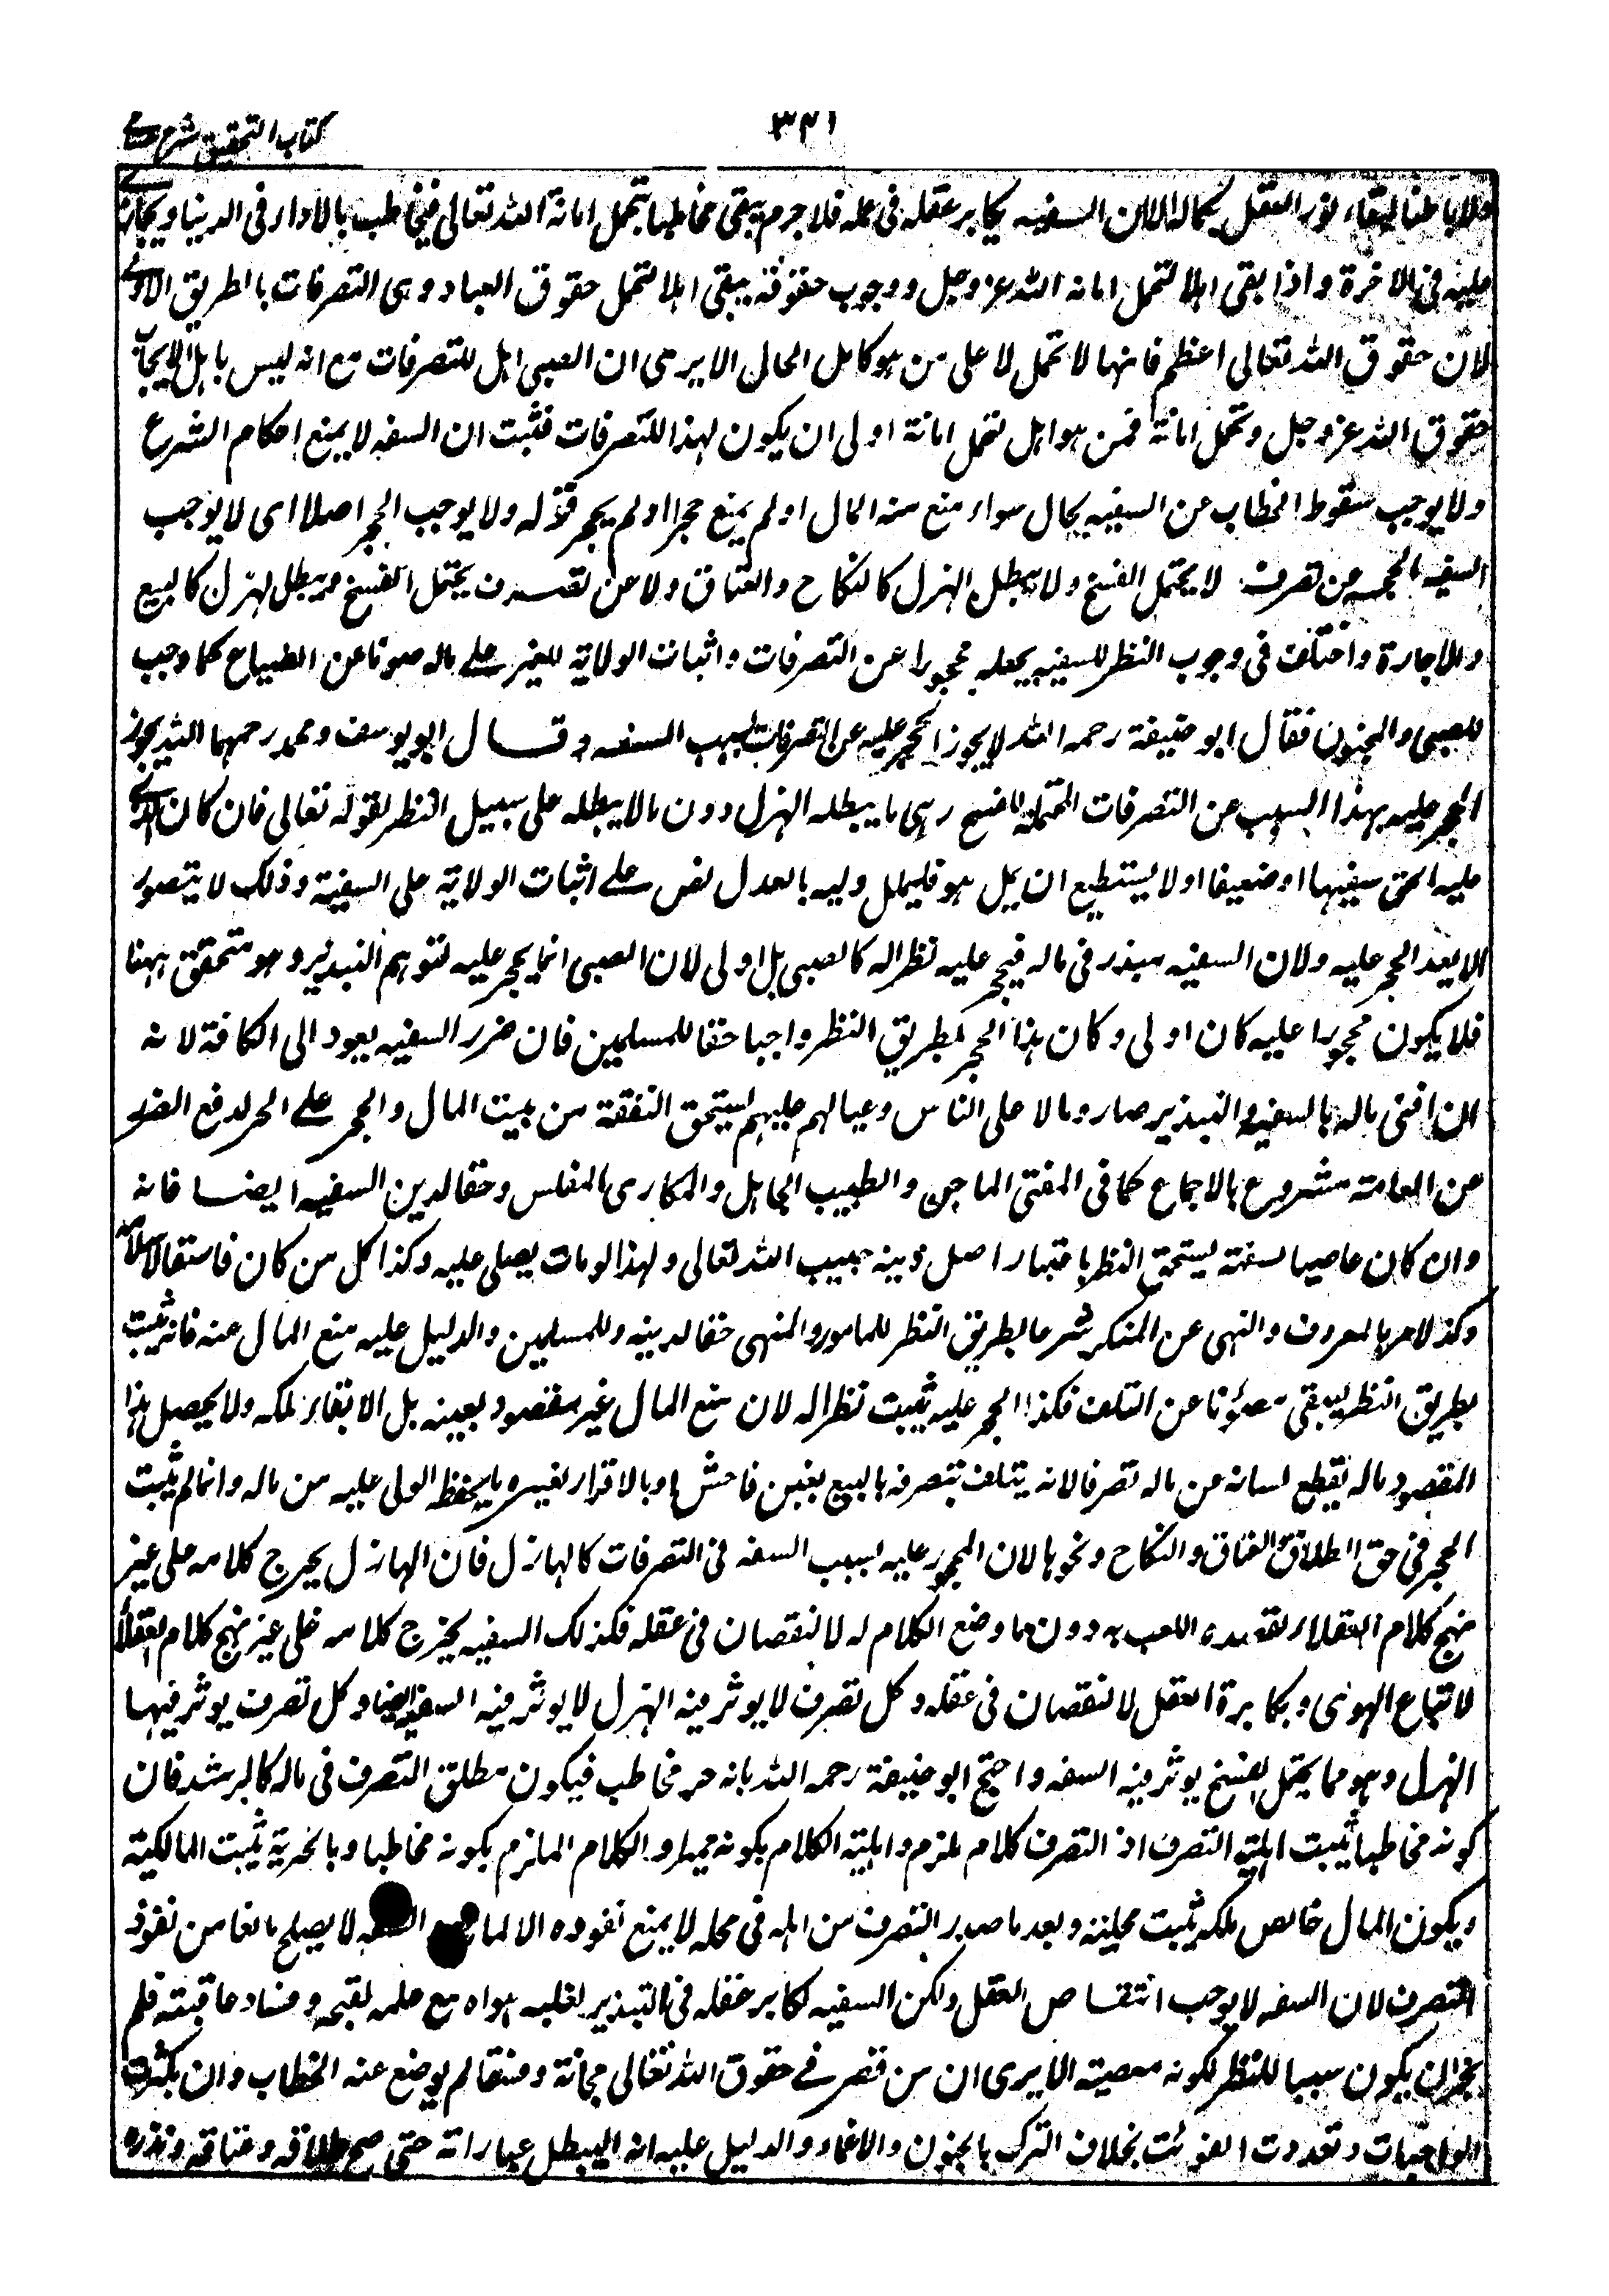 كتاب التحقيق شرح
٣٤١
ولا باطنا لبقاء نور العقل بكماله الا ان السفيه يكابر عقله فى عمله فلا جرم يبقى مخاطبا بتحمل امانة الله تعالى فيخاطب بالاداء فى الدنيا ويجازى
عليه فى الاخرة واذا بقى اهلا لتحمل امانة الله عز وجل ووجوب حقوقه يبقى اهلا لتحمل حقوق العباد وهى التصرفات بالطريق الاولى
لان حقوق الله تعالى اعظم فانها لا تحمل لا على من هو كامل الحال الا يرى ان الصبى اهل للتصرفات مع انه ليس باهل لايجاب
حقوق الله عز وجل وتحمل امانة فمن هو اهل تحمل امانة اولى ان يكون لهذا للتصرفات فثبت ان السفه لا يمنع احكام الشرع
ولا يوجب سقوط الخطاب عن السفيه بحال سواء منع منه المال او لم يمنع حجرا او لم يحجر قوله ولا يوجب الحجر اصلا اى لا يوجب
السفه الحجر عن تصرف لا يحتمل الفسخ ولا يبطل الهزل كالنكاح والعتاق ولا عن تصرف يحتمل الفسخ ويبطل لهزل كالبيع
والاجارة واختلف فى وجوب النظر للسفيه بجعله محجورا عن التصرفات واثبات الولاية للغير على ماله صونا عن الضياع كما وجب
للصبى والمجنون فقال ابو حنيفة رحمه الله لا يجوز الحجر عليه عن التصرفات بسبب السفه وقال ابو يوسف ومحمد رحمهما الله يجوز
الحجر عليه بهذا السبب عن التصرفات المحتملة للفسخ وهى ما يبطله الهزل دون ما لا يبطله على سبيل النظر لقوله تعالى فان كان الذى
عليه الحق سفيها او ضعيفا او لا يستطيع ان يمل هو فليملل وليه بالعدل نص على اثبات الولاية على السفيه وذلك لا يتصور
الا بعد الحجر عليه ولان السفيه مبذر فى ماله فيحجر عليه نظرا له كالصبى بل اولى لان الصبى انما يحجر عليه لتوهم التبذير وهو متحقق ههنا
فلا يكون محجورا عليه كان اولى وكان هذا الحجر بطريق النظر واجبا حقا للمسلمين فان ضرر السفيه يعود الى الكافة لانه
لان افنى ماله بالسفه والتبذير صار وبالا على الناس وعيالهم عليهم يستحق النفقة من بيت المال والحجر على الحر لدفع الضرر
عن العامة مشروع بالاجماع كما فى المفتى الماجن والطبيب الجاهل والمكارى المفلس وحقا لدين السفيه ايضا فانه
وان كان عاصيا بسفهه يستحق النظر باعتبار اصل دينه حبيب الله تعالى ولهذا لو مات يصلى عليه وكذا كل من كان فاسقا
وكذا لامر بالمعروف والنهى عن المنكر شرعا بطريق النظر للمامور والمنهى حقا لدينه وللمسلمين والدليل عليه منع المال عنه فانه يثبت
بطريق النظر ليبقى مصونا عن التلف فكذا الحجر عليه يثبت نظرا له لان منع المال غير مقصود بعينه بل الابقاء ملكه ولا يحصل هذا
المقصود ماله يقطع لسانه عن ماله تصرفا لانه يتلف بتصرفه بالبيع بغبن فاحش او بالاقرار لغيره ما يحفظه الولى عليه من ماله وانما لم يثبت
الحجر فى حق الطلاق والعتاق والنكاح ونحوها لان المحجور عليه بسبب السفه فى التصرفات كالهازل فان الهازل يخرج كلامه على غير
نهج كلام العقلاء لقصده اللعب به دون ما وضع الكلام له لا لنقصان فى عقله فكذلك السفيه يخرج كلامه على غير نهج كلام العقلاء
لاتباع الهوى ومكابرة العقل لا لنقصان فى عقله وكل تصرف لا يوثر فيه الهزل لا يوثر فيه السفه ايضا وكل تصرف يوثر فيها
الهزل وهو مما يحتمل الفسخ يوثر فيه السفه واحتج ابو حنيفة رحمه الله بانه حر مخاطب فيكون مطلق التصرف فى ماله كالرشد فان
كونه مخاطبا يثبت اهلية التصرف اذ التصرف كلام ملزم واهلية الكلام بكونه مميزا والكلام الملزم بكونه مخاطبا وبالحرية يثبت المالكية
ويكون المال خالص ملكه يثبت محلية وبعد ما صدر التصرف من اهله فى محله لا يمنع نفوذه الا لمانع السفه لا يصلح مانعا من نفوذ
التصرف لان السفه لا يوجب انتقاص العقل ولكن السفيه كابر عقله فى التبذير لغلبه هواه مع علمه لقبحه وفساد عاقبته فلم
يجز ان يكون سببا للنظر لكونه معصية الا يرى ان من قصر فى حقوق الله تعالى مجانة وفسقا لم يوضع عنه الخطاب وان بكثرت
الواجبات وتعددت الفوئت بخلاف الترك بالجنون والاغماء والدليل عليه انه لا يبطل عباراته حتى صح طلاقه وعتاقه ونذره